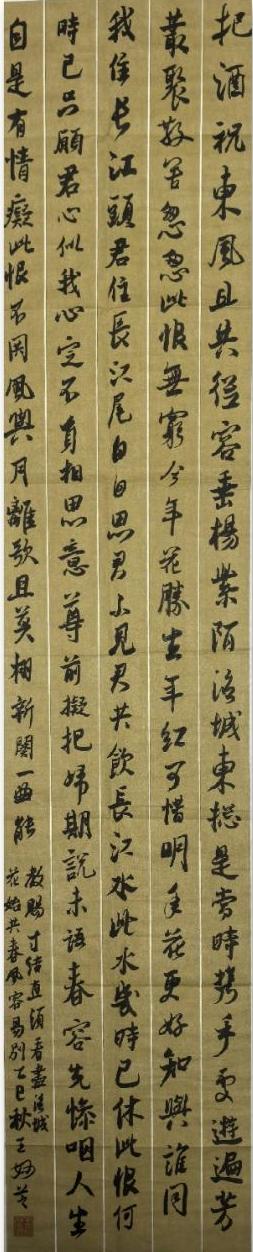 把酒祝東風且共從容垂楊紫陌洛城東總是當時攜手處遊遍芳
叢聚散苦怱怱此恨無窮今年花勝去年紅可惜明年花更好知與誰同
我住長江頭君住長江尾日日思君不見君共飲長江水此水幾時已休此恨何
時已只願君心似我心定不負相思意尊前擬把歸期說未語春容先慘咽人生
自是有情癡此恨不関風與月離歌且莫翻新闋一曲能
教腸寸結直須看盡洛城
花始共春風容易別乙巳秋王